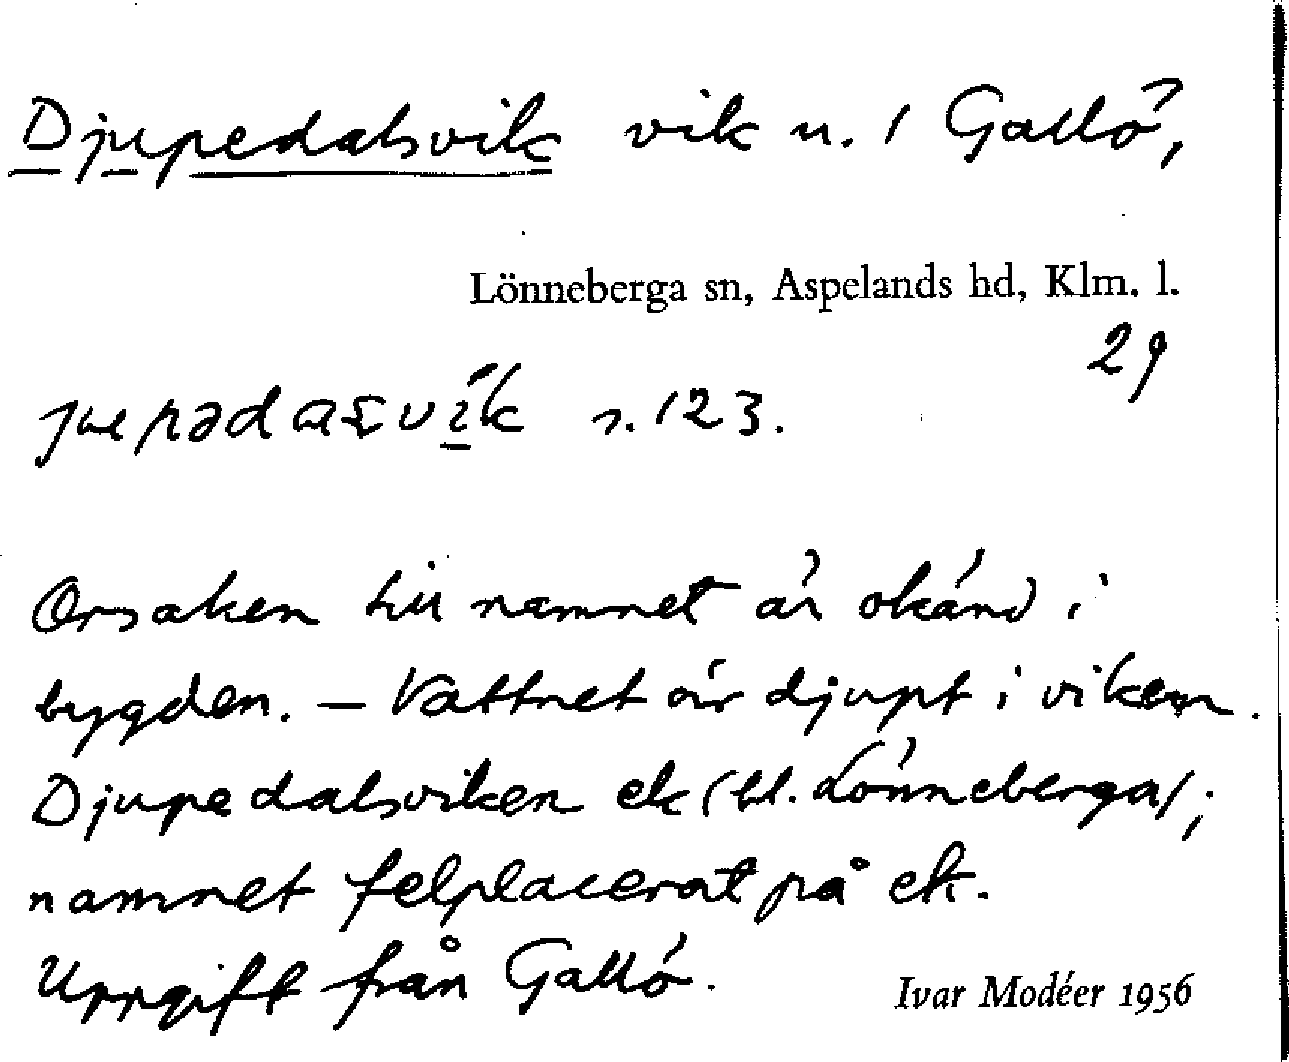 Djupedalsvik vik n. / Gallö,
Lönneberga sn, Aspelands hd, Klm. l.
29
s. 123.
Orsaken till namnet är okänd i
bygden. – Vattnet är djupt i viken.
Djupedalsviken ek (bl. Lönneberga);
namnet felplacerat på ek.
Uppgift från Gallö.
Ivar Modéer 1956